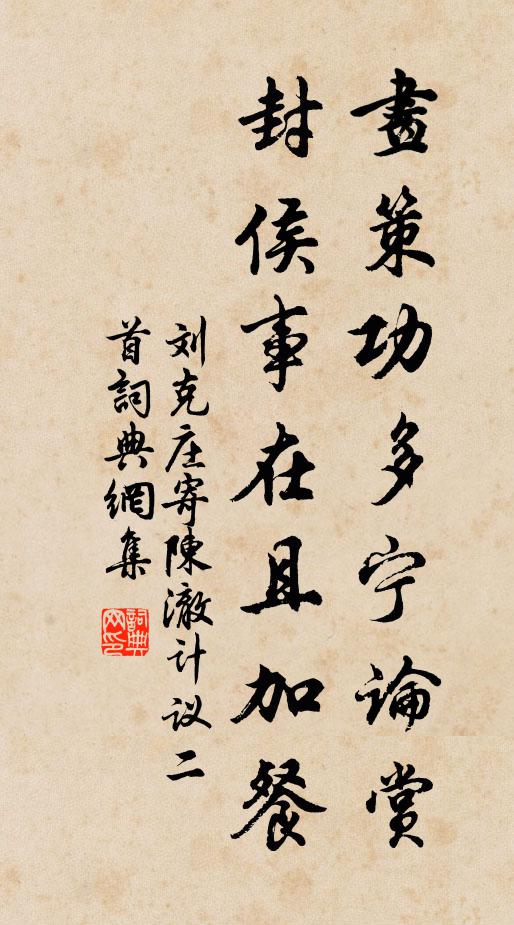 畫策功多宁論賞
封侯事在且加餐
刘克庄寄陳澈计议二
首詞典網集
詞典
网印